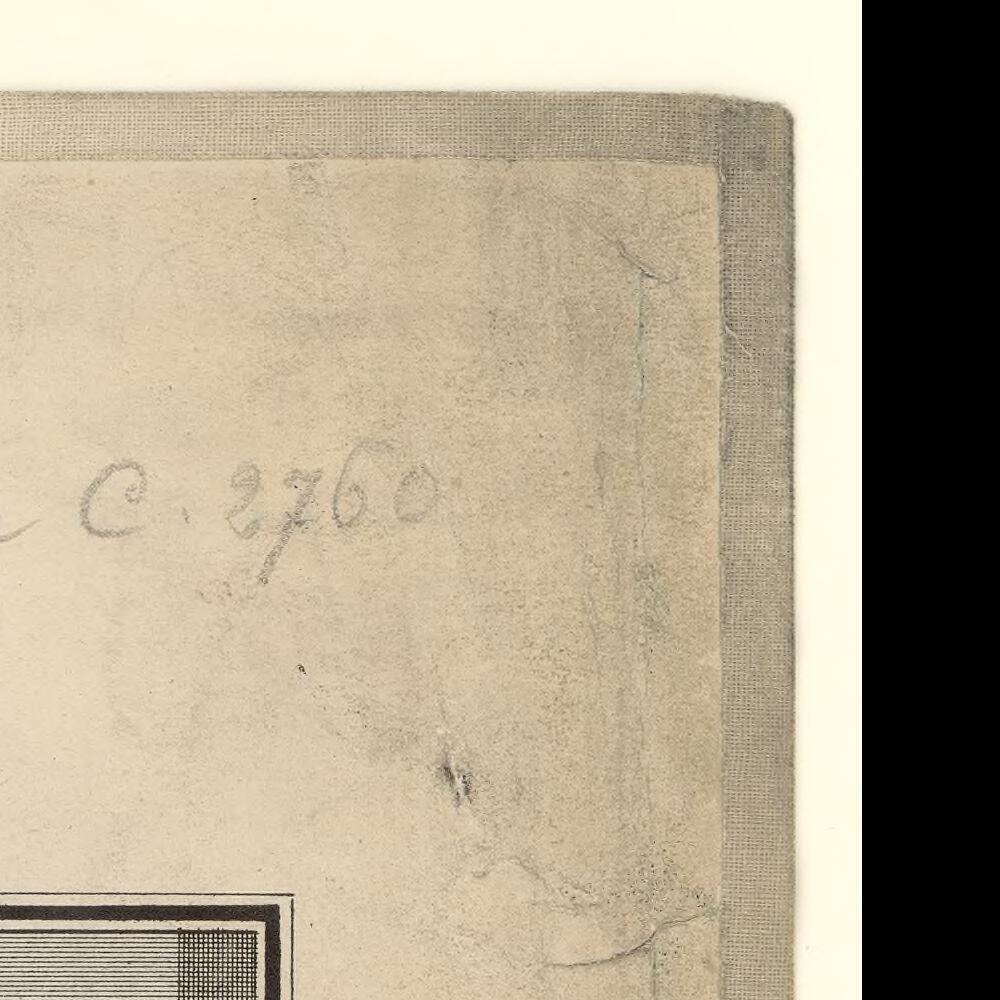 C. 2760